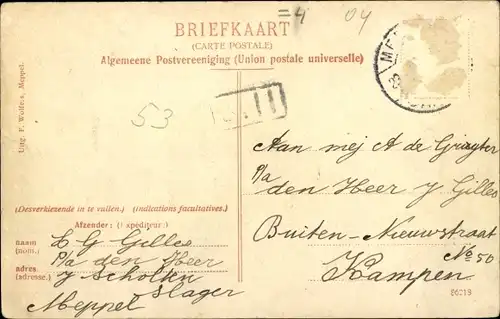 =4 04
BRIEFKAART
(CARTE POSTALE)
Algemeene Postvereeniging (Union postale universelle)
ME
53
Uitg. F. Wolfers, Meppel.
Aan mej A de Gruyter
P/a
den Heer J Gilles
Buiten-Nieuwstraat
No 50
Kampen
(Desverkiezende in te vullen.) (Indications facultatives.)
Afzender: (Expéditeur:)
naam (nom.) G Gilles
P/a den Heer
adres. (adresse.) J Scholten
Slager
Meppel